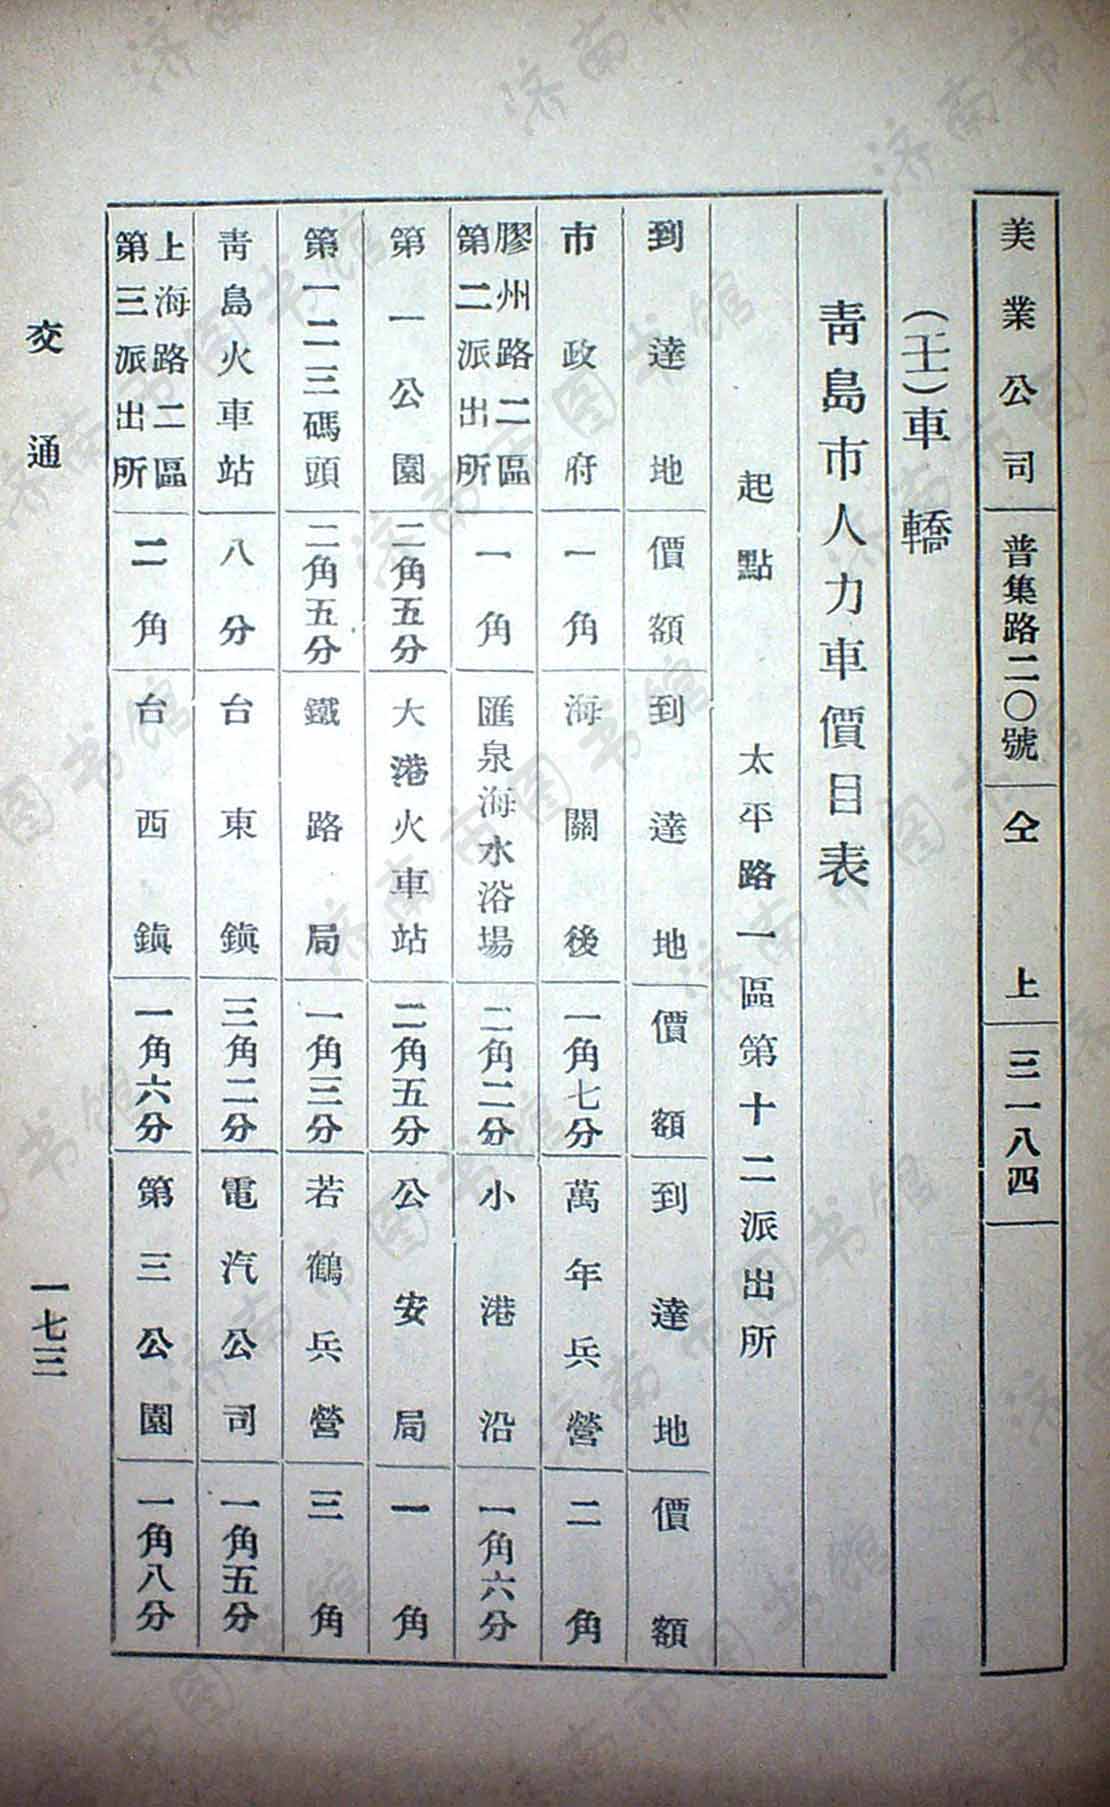 美業公司　普集路二〇號　仝上　三一八四
（十一）車轎
青島市人力車價目表
起點　太平路一區第十二派出所
到達地　價額　到達地　價額　到達地　價額
市政府　一角　海關後　一角七分　萬年兵營　二角
膠州路二區第二派出所　一角　匯泉海水浴場　二角二分　小港沿　一角六分
第一公園　二角五分　大港火車站　二角五分　公安局　一角
第一二三碼頭　二角五分　鐵路局　一角三分　若鶴兵營　三角
靑島火車站　八分　台東鎮　三角二分　電汽公司　一角五分
上海路二區第三派出所　二角　台西鎮　一角六分　第三公園　一角八分
交通
一七三
济南市图书馆